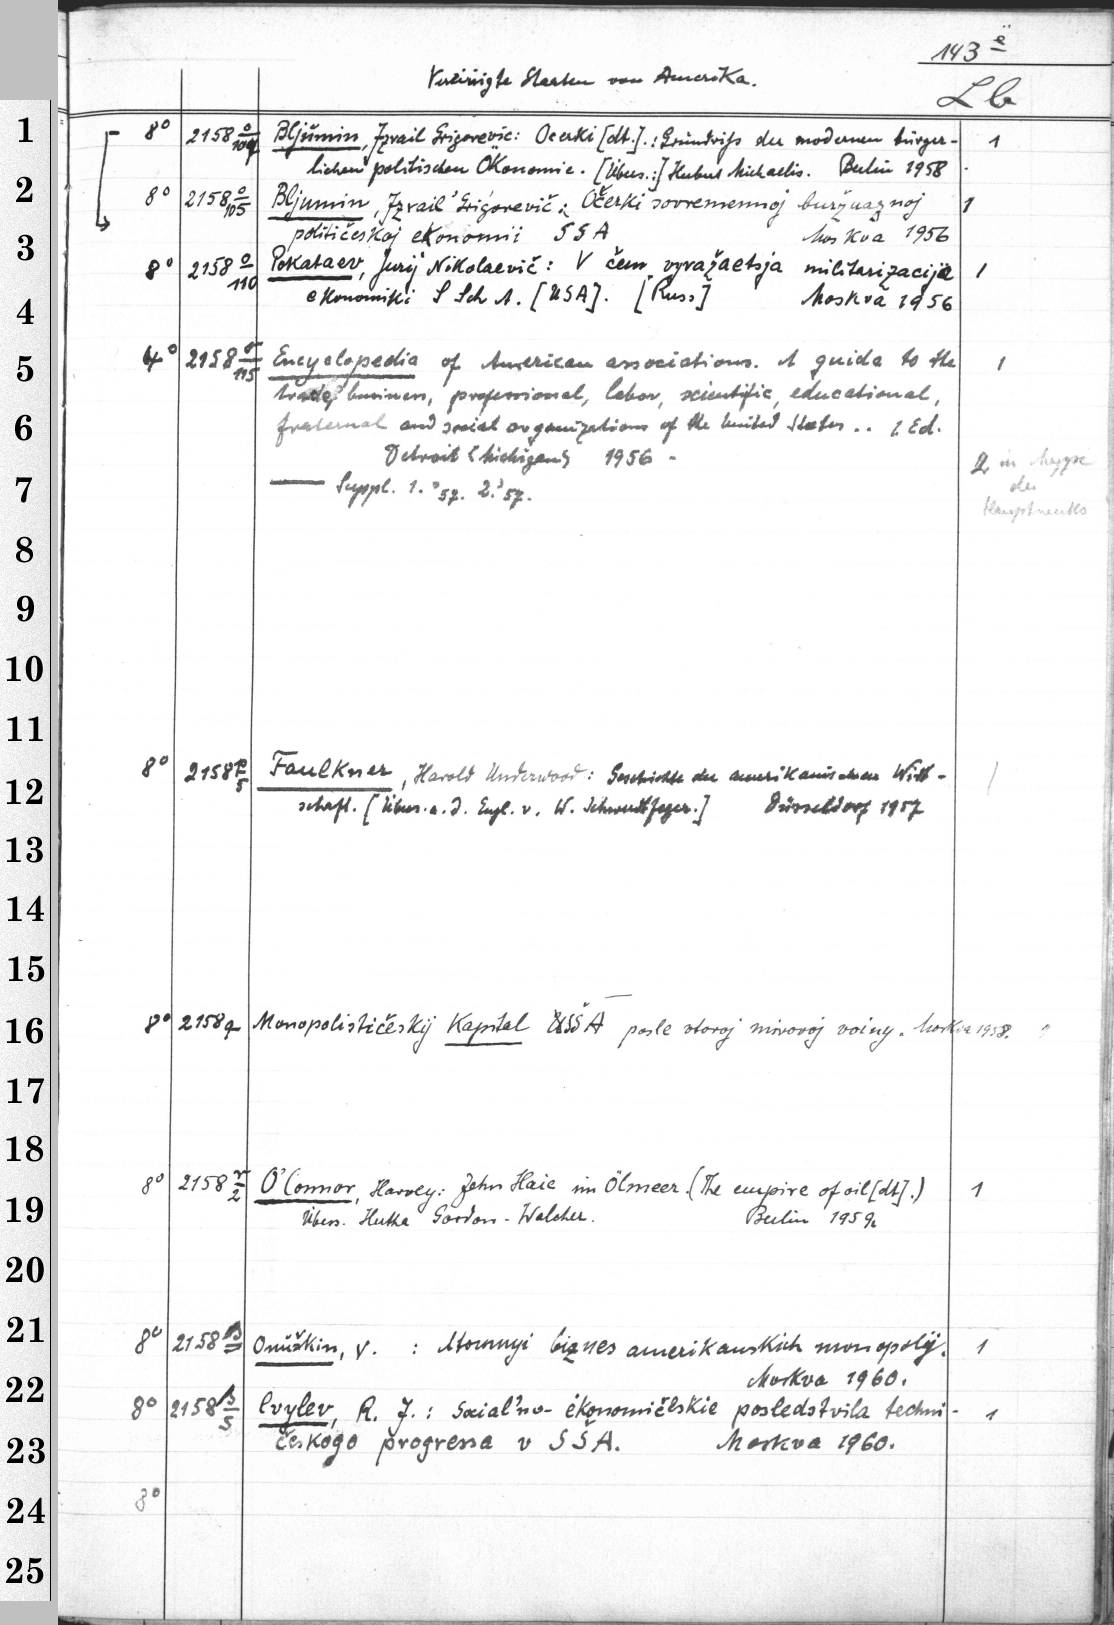 143 ë
Vereinigte Staaten von Amerika.
Lb
1 8° 2158 o/104 Bljumin, Izrail Grigorevic: Ocerki [dt.].: Grundriss der modernen bürger- 1
lichen politischen Ökonomie. [Übers.:] Hubert Michaelis. Berlin 1958
2 8° 2158 o/105 Bljumin, Izrail' Grigorevič: Očerki sovremennoj buržuaznoj 1
političeskoj ekonomii SSA Moskva 1956
3 8° 2158 o/110 Pokataev, Jurij Nikolaevič: V čem vyražaetsja militarizacija 1
4 ekonomiki S Sch A. [USA]. [Russ] Moskva 1956
5 4° 2158 o/115 Encyclopedia of American associations. A guide to the 1
trade, business, professional, labor, scientific, educational,
6 fraternal and social organizations of the United States .. 1. Ed.
Detroit (Michigan) 1956 -
2 in Mappe
7 — Suppl. 1. '57. 2. '57. des
Hauptwerks
8
9
10
11
12 8° 2158 p/5 Faulkner, Harold Underwood: Geschichte der amerikanischen Wirt- 1
schaft. [Übers. a. d. Engl. v. W. Schwerdtfeger.] Düsseldorf 1957
13
14
15
16 8° 2158 q Monopolističeskij Kapital SŠA posle vtoroj mirovoj vojny. Moskva 1958. 1
17
18
19 8° 2158 r/2 O'Connor, Harvey: John Haie im Ölmeer. (The empire of oil [dt].) 1
Übers. Hutha Gordon-Walcher. Berlin 1959
20
21 8° 2158 s Onuškin, V. : Atomnyi biznes amerikanskich monopolij. 1
22 Moskva 1960.
8° 2158 s/5 Cvylev, R. J.: Social'no-ėkonomičeskie posledstvila techni- 1
23 českogo progressa v SŠA. Moskva 1960.
24 8°
25